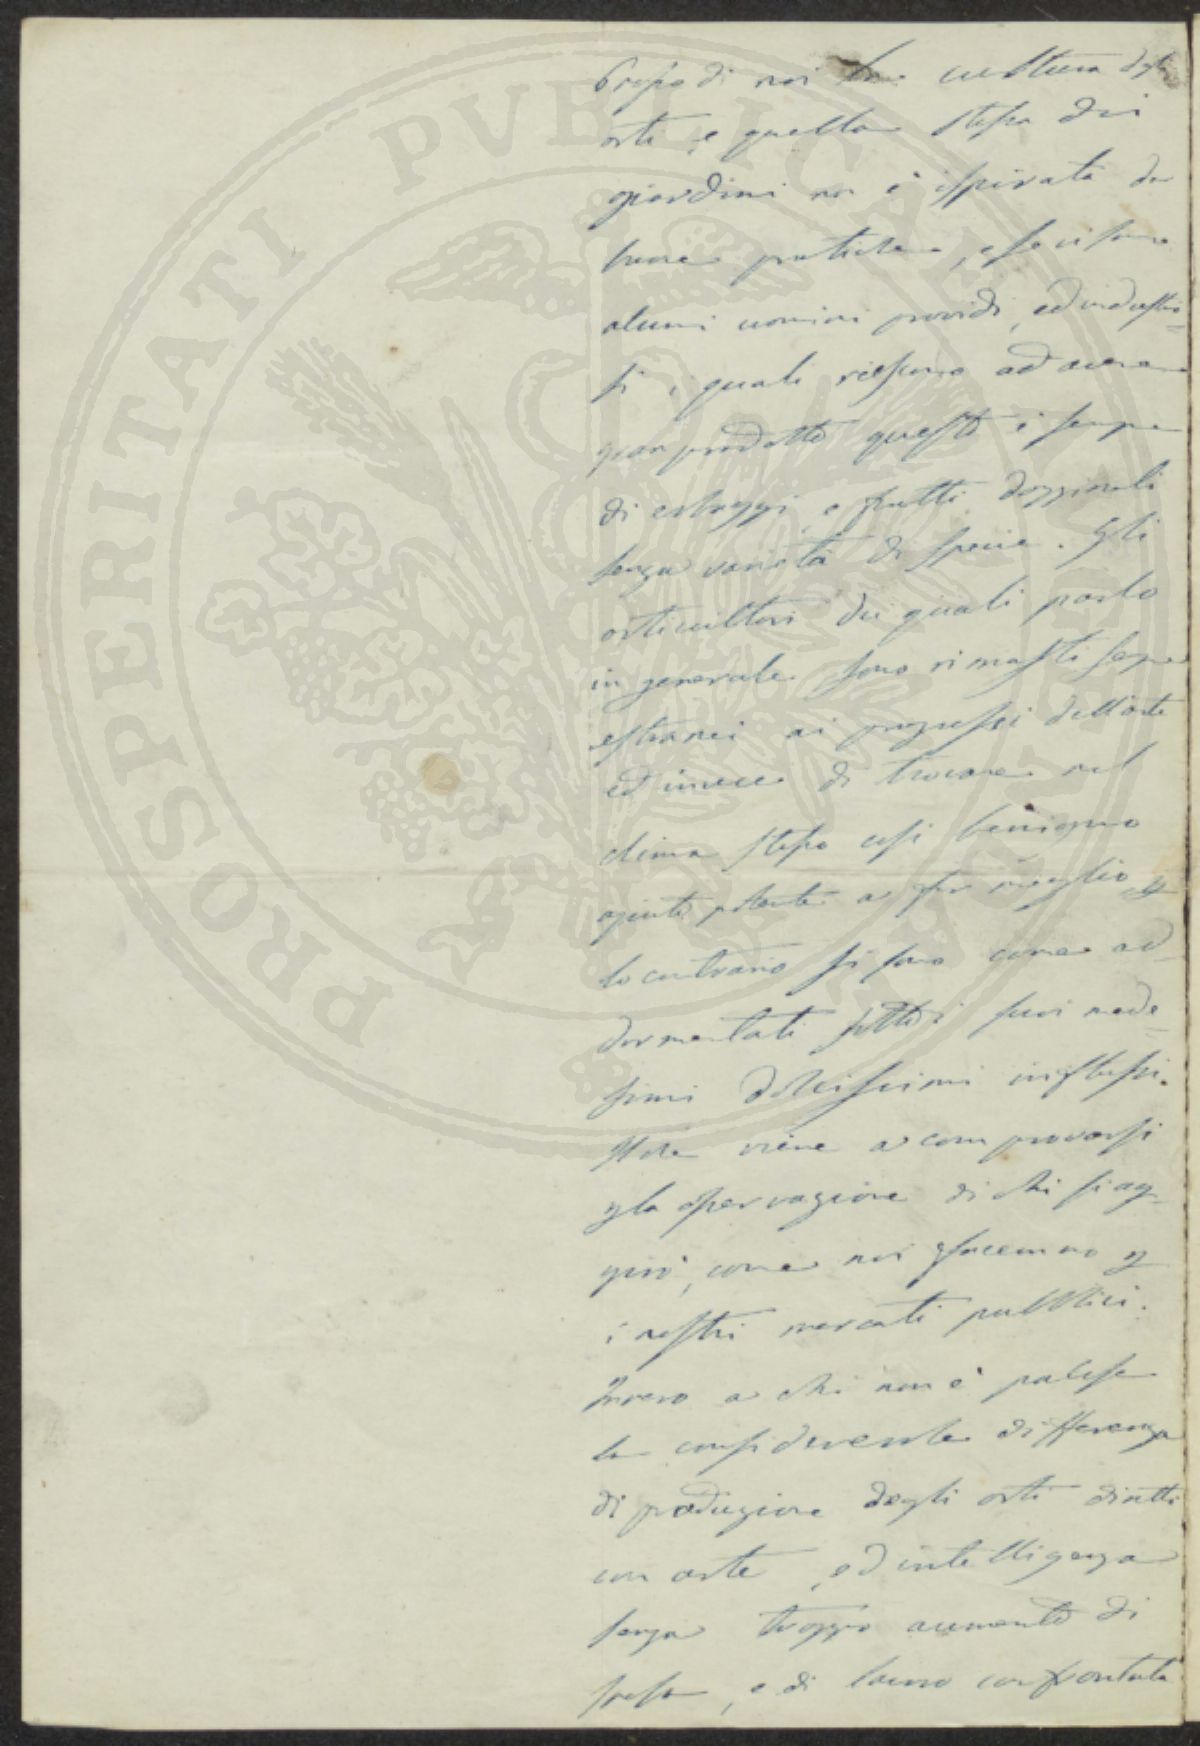 Presso di noi la cultura degli
orti, e quella stessa dei
giardini non è ispirata da
buone pratiche, e se vi sono
alcuni uomini providi, ed industrio=
si i quali riescono ad avere
gran prodotto questo è sempre
di ortaggi, e frutti dozzinali
senza varietà di specie. Gli
orticultori dei quali parlo
in generale sono rimasti sempre
estranei ai progressi dell'arte
ed invece di trovare nel
clima stesso così benigno
ajuto potente a far meglio
lo contrario si sono come ad
dormentati sotto i suoi mede=
simi dolcissimi influssi.
viene a comprovarsi
la osservazione di chi si ag-
girò, come noi facemmo
i nostri mercati pubblici.
Invero a chi non è palese
la considerevole differenza
di produzione degli orti diretti
con arte, ed intelligenza
senza troppo aumento di
spesa, e di lavoro confrontata
PROSPERITATI PVBLICAE AVGENDAE